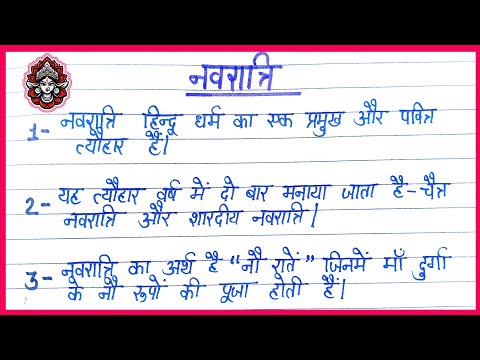 नवरात्रि
1- नवरात्रि हिन्दू धर्म का एक प्रमुख और पवित्र
त्यौहार हैं।
2- यह त्यौहार वर्ष में दो बार मनाया जाता है - चैत्र
नवरात्रि और शारदीय नवरात्रि।
3- नवरात्रि का अर्थ है "नौ रातें" जिनमें माँ दुर्गा
के नौ रूपों की पूजा होती हैं।